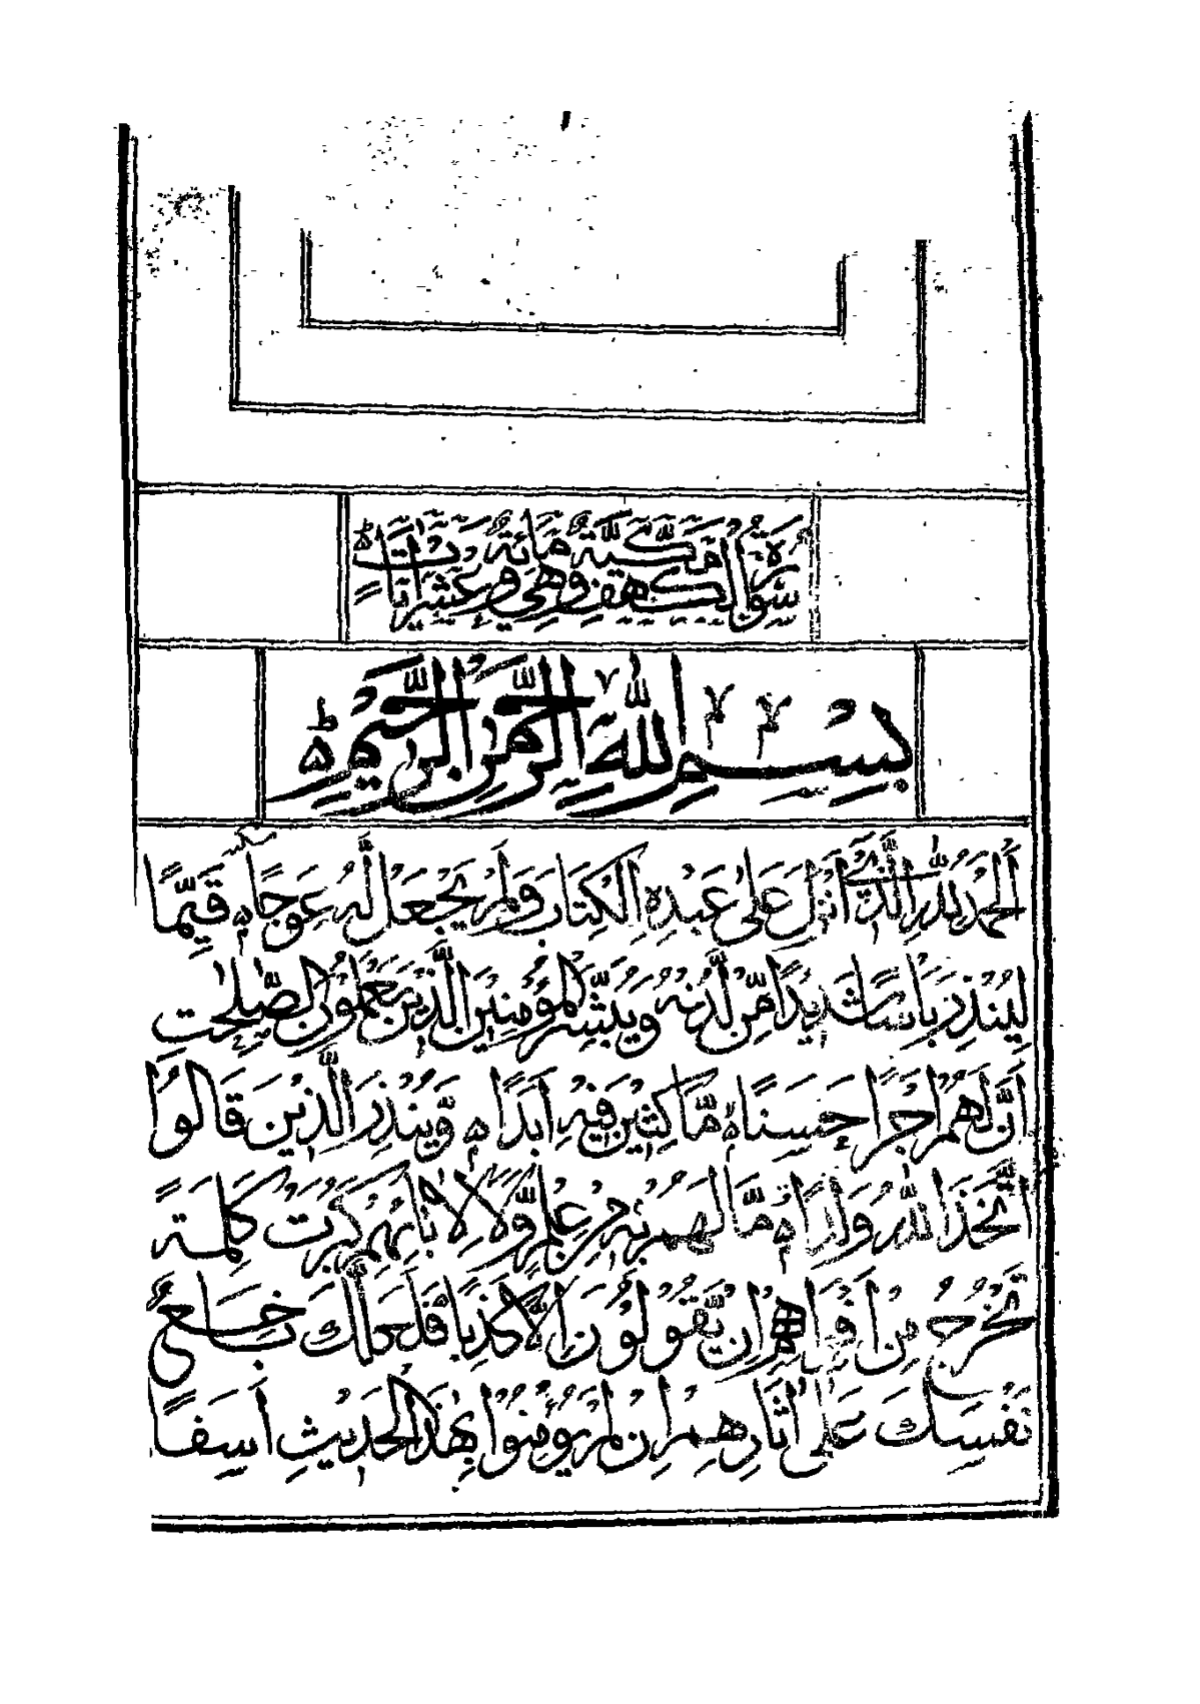 سُوْرَةُ الْكَهْفِ مَكِّيَّةٌ وَهِيَ مِائَةٌ وَعَشْرُ اٰيَاتٍ
بِسْمِ اللهِ الرَّحْمٰنِ الرَّحِيْمِ
اَلْحَمْدُ لِلّٰهِ الَّذِيْٓ اَنْزَلَ عَلٰى عَبْدِهِ الْكِتَابَ وَلَمْ يَجْعَلْ لَّهٗ عِوَجًا قَيِّمًا
لِيُنْذِرَ بَاْسًا شَدِيْدًا مِّنْ لَّدُنْهُ وَيُبَشِّرَ الْمُؤْمِنِيْنَ الَّذِيْنَ يَعْمَلُوْنَ الصّٰلِحٰتِ
اَنَّ لَهُمْ اَجْرًا حَسَنًا مَّاكِثِيْنَ فِيْهِ اَبَدًا وَّيُنْذِرَ الَّذِيْنَ قَالُوا
اتَّخَذَ اللهُ وَلَدًا مَّا لَهُمْ بِهٖ مِنْ عِلْمٍ وَّلَا لِاٰبَآئِهِمْ كَبُرَتْ كَلِمَةً
تَخْرُجُ مِنْ اَفْوَاهِهِمْ اِنْ يَّقُوْلُوْنَ اِلَّا كَذِبًا فَلَعَلَّكَ بَاخِعٌ
نَفْسَكَ عَلٰٓى اٰثَارِهِمْ اِنْ لَّمْ يُؤْمِنُوْا بِهٰذَا الْحَدِيْثِ اَسَفًا